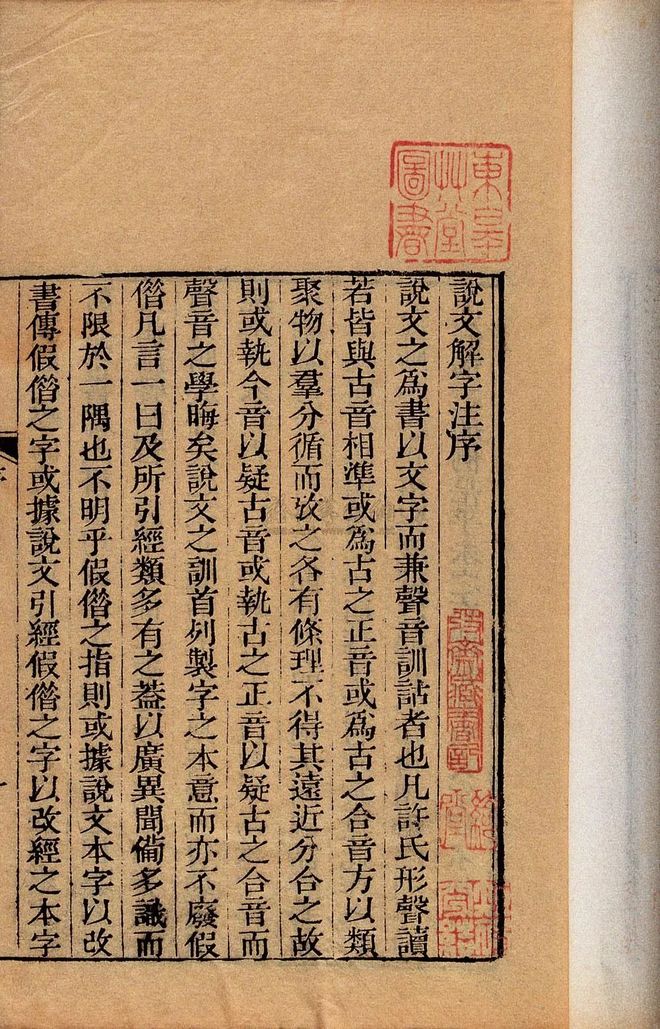 說文解字注序
說文之爲書以文字而兼聲音訓詁者也凡許氏形聲讀
若皆與古音相準或爲古之正音或爲古之合音方以類
聚物以羣分循而攷之各有條理不得其遠近分合之故
則或執今音以疑古音或執古之正音以疑古之合音而
聲音之學晦矣說文之訓首列製字之本意而亦不廢假
偺凡言一曰及所引經類多有之葢以廣異聞備多識而
不限於一隅也不明乎假偺之指則或據說文本字以改
書傳假偺之字或據說文引經假偺之字以改經之本字
東皋
艸堂
圖書